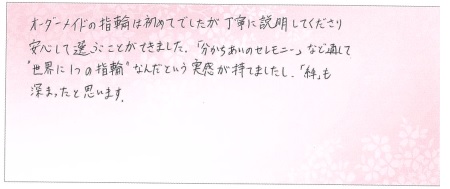 オーダーメイドの指輪は初めてでしたが丁寧に説明してくださり
安心して選ぶことができました。「分かちあいのセレモニー」など通して
"世界に1つの指輪"なんだという実感が持てましたし、「絆」も
深まったと思います。